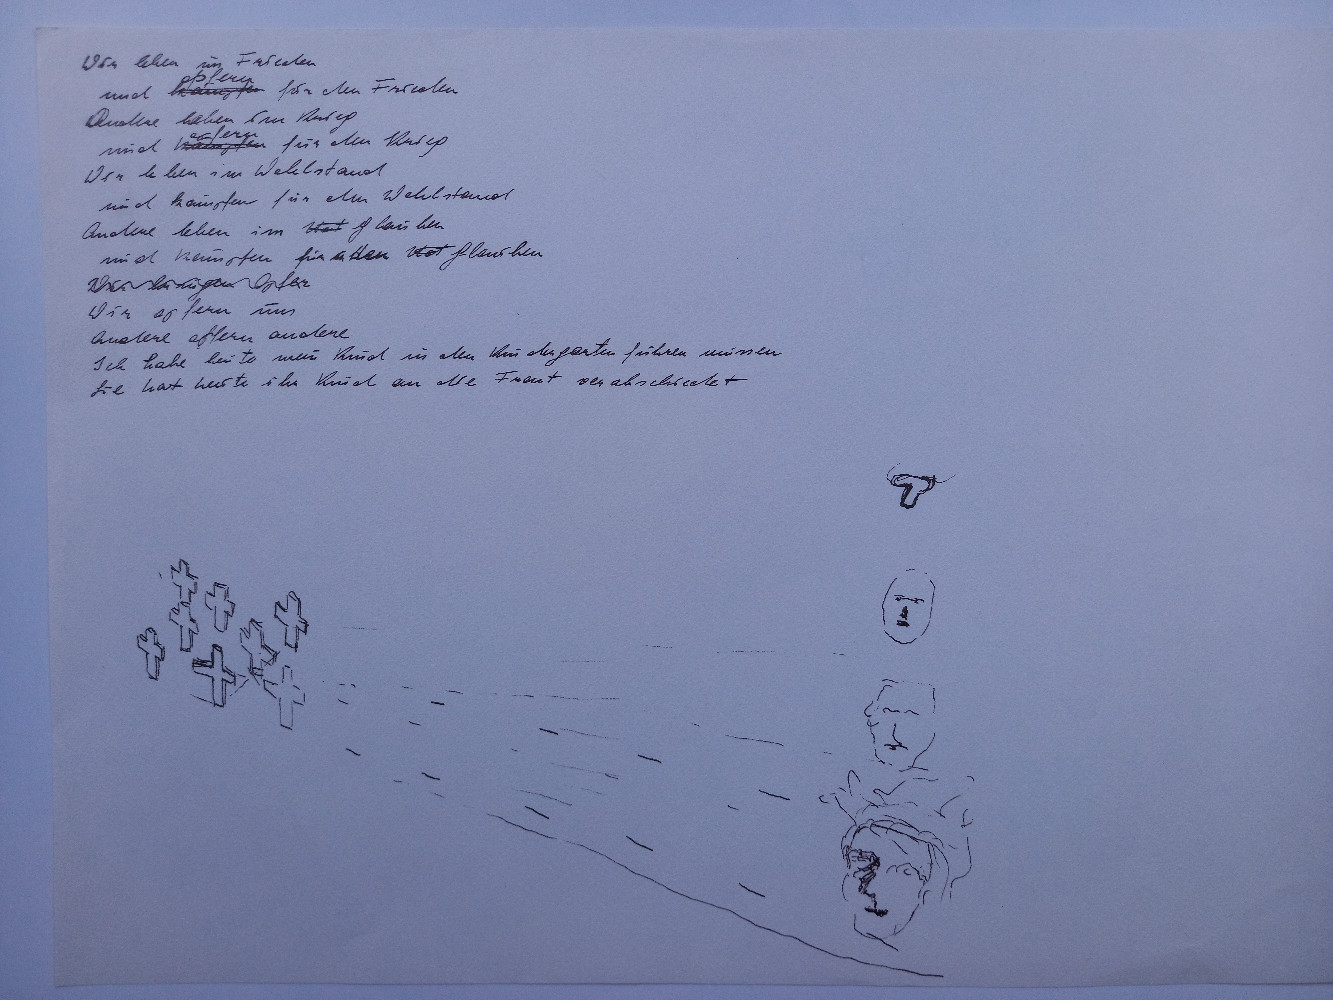 Wir leben im Frieden
und kämpfen opfern für den Frieden
Andere leben im Krieg
und kämpfen opfern für den Krieg
Wir leben im Wohlstand
und kämpfen für den Wohlstand
Andere leben im Not Glauben
und kämpfen für den Not Glauben
Wir bringen Opfer
Wir opfern uns
Andere opfern andere
Ich habe heute mein Kind in den Kindergarten führen müssen
Sie hat heute ihr Kind an die Front verabschiedet